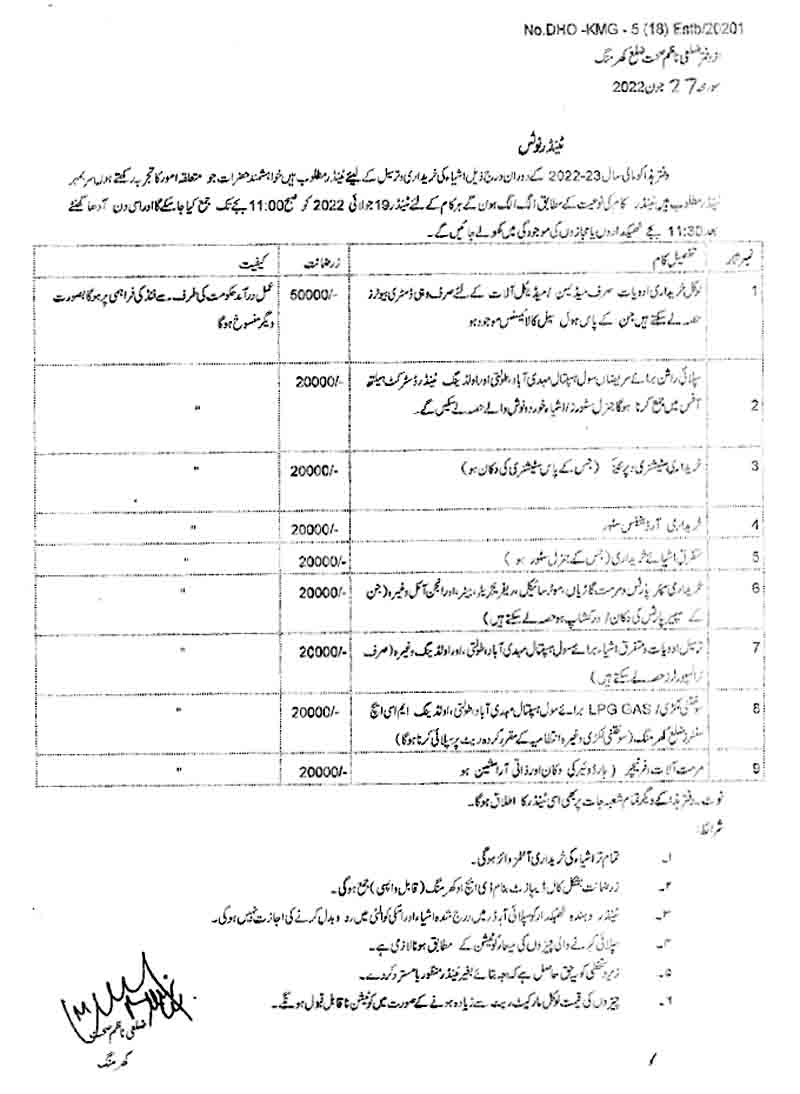 No.DHO -KMG - 5 (18) Estb/20201
از دفتر ضلعی ناظم صحت ضلع کھرمنگ
مورخہ 27 جون 2022
ٹینڈر نوٹس
دفتر ہذا کو مالی سال 23-2022 کے دوران درج ذیل اشیاء کی خریداری و ترسیل کے لیئے ٹینڈر مطلوب ہیں خواہشمند حضرات جو متعلقہ امور کا تجربہ رکھتے ہوں سر بمہر
ٹینڈر مطلوب ہیں ٹینڈر کام کی نوعیت کے مطابق الگ الگ ہون گے ہر کام کے لئے ٹینڈر 19 جولائی 2022 کو صبح 11:00 بجے تک جمع کیا جا سکے گا اور اسی دن آدھا گھنٹے
بعد 11:30 بجے ٹھیکداروں یا مجازوں کی موجودگی میں کھولے جائیں گے۔
نمبر شمار تفصیل کام زرضمانت کیفیت
1 لوکل خریداری ادویات صرف میڈیسن / میڈیکل آلات کے لئے صرف وہی ڈسٹری بیوٹرز 50000/- عمل درآمد حکومت کی طرف سے فنڈ کی فراہمی پر ہوگا بصورت
حصہ لے سکتے ہیں جن کے پاس ہول سیل کا لائسنس موجود ہو دیگر منسوخ ہوگا
سپلائی راشن برائے مریضاں سول ہسپتال مہدی آباد، طولتی اور اولڈینگ ٹینڈر ڈسٹرکٹ ہیلتھ 20000/-
2 آفس میں جمع کرنا ہوگا جنرل سٹورز / اشیاء خورد و نوش والے حصہ لے سکیں گے۔ "
3 خریداری سٹیشنری و (جس کے پاس سٹیشنری کی دکان ہو) 20000/- "
4 خریداری سٹور 20000/- "
5 متفرق اشیائے خریداری (جس کے جنرل سٹور ہو ) 20000/- "
6 خریداری سپئر پارٹس و مرمت گاڑیاں، موٹر سائیکل، ریفریجریٹر، ہیٹر، اور انجن آئل وغیرہ (جن 20000/- "
کے سپیر پارٹس کی دکان / ورکشاپ ہو حصہ لے سکتے ہیں)
7 ترسیل ادویات و متفرق اشیاء برائے سول ہسپتال مہدی آباد، طولتی، اور اولڈینگ وغیرہ (صرف 20000/- "
ٹرانسپورٹرز حصہ لے سکتے ہیں)
8 سوختنی لکڑی / LPG GAS برائے سول ہسپتال مہدی آباد، طولتی، اولڈینگ ایم سی ایچ 20000/- "
سنٹرز ضلع کھرمنگ، (سوختنی لکڑی وغیرہ انتظامیہ کے مقرر کردہ ریٹ پر سپلائی کرنا ہوگا)
9 مرمت آلات و فرنیچر ( ہارڈوئیر کی دکان اور ذاتی آرا مشین ہو 20000/- "
نوٹ۔ دفتر ہذا کے دیگر تمام شعبہ جات پر بھی اسی ٹینڈر کا اطلاق ہوگا۔
شرائط:
۱۔ تمام تر اشیاء کی خریداری آئٹمز وائز ہوگی۔
۲۔ زرضمانت بشکل کال ڈیپازٹ بنام ڈی ایچ او کھرمنگ (قابل واپسی) جمع ہوگی۔
۳۔ ٹینڈر دہندہ ٹھیکدار کو سپلائی آرڈر میں درج شدہ اشیاء اور انکی کوالٹی میں رد و بدل کرنے کی اجازت نہیں ہوگی۔
۴۔ سپلائی کرنے والی چیزوں کی معیار کوٹیشن کے مطابق ہونا لازمی ہے۔
۵۔ زیر دستخطی کو یہ حق حاصل ہے کہ وجہ بتائے بغیر ٹینڈر منظور یا مسترد کر دے۔
۶۔ چیزوں کی قیمت لوکل مارکیٹ ریٹ سے زیادہ ہونے کے صورت میں کوٹیشن نا قابل قبول ہونگے۔
ضلعی ناظم صحت
کھرمنگ